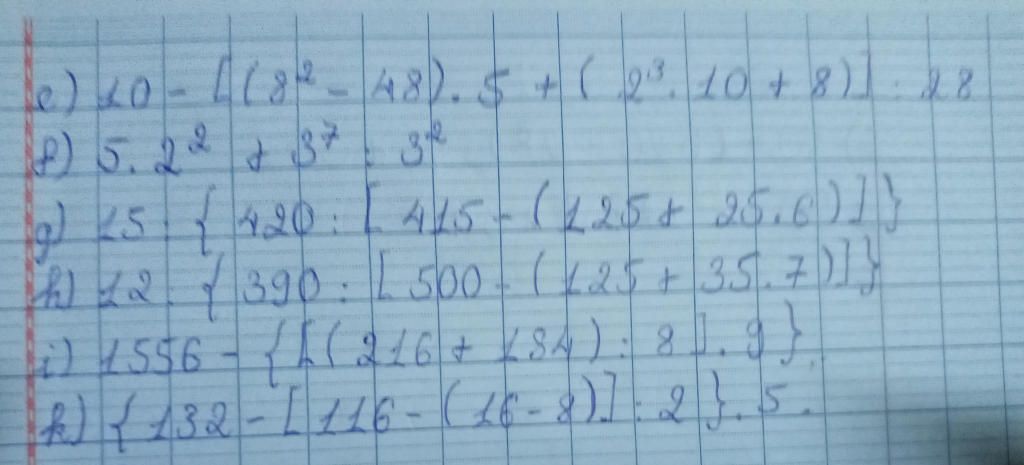 e) 10 - [(8² - 48). 5 + (2³. 10 + 8)] : 28
f) 5. 2² + 3⁷ : 3²
g) 15 : { 420 : [ 415 - (125 + 25. 6)]}
h) 12 : { 390 : [ 500 - (125 + 35. 7)]}
i) 1556 - {[(216 + 184) : 8]. 9}
k) {132 - [116 - (16 - 8)] : 2}. 5.